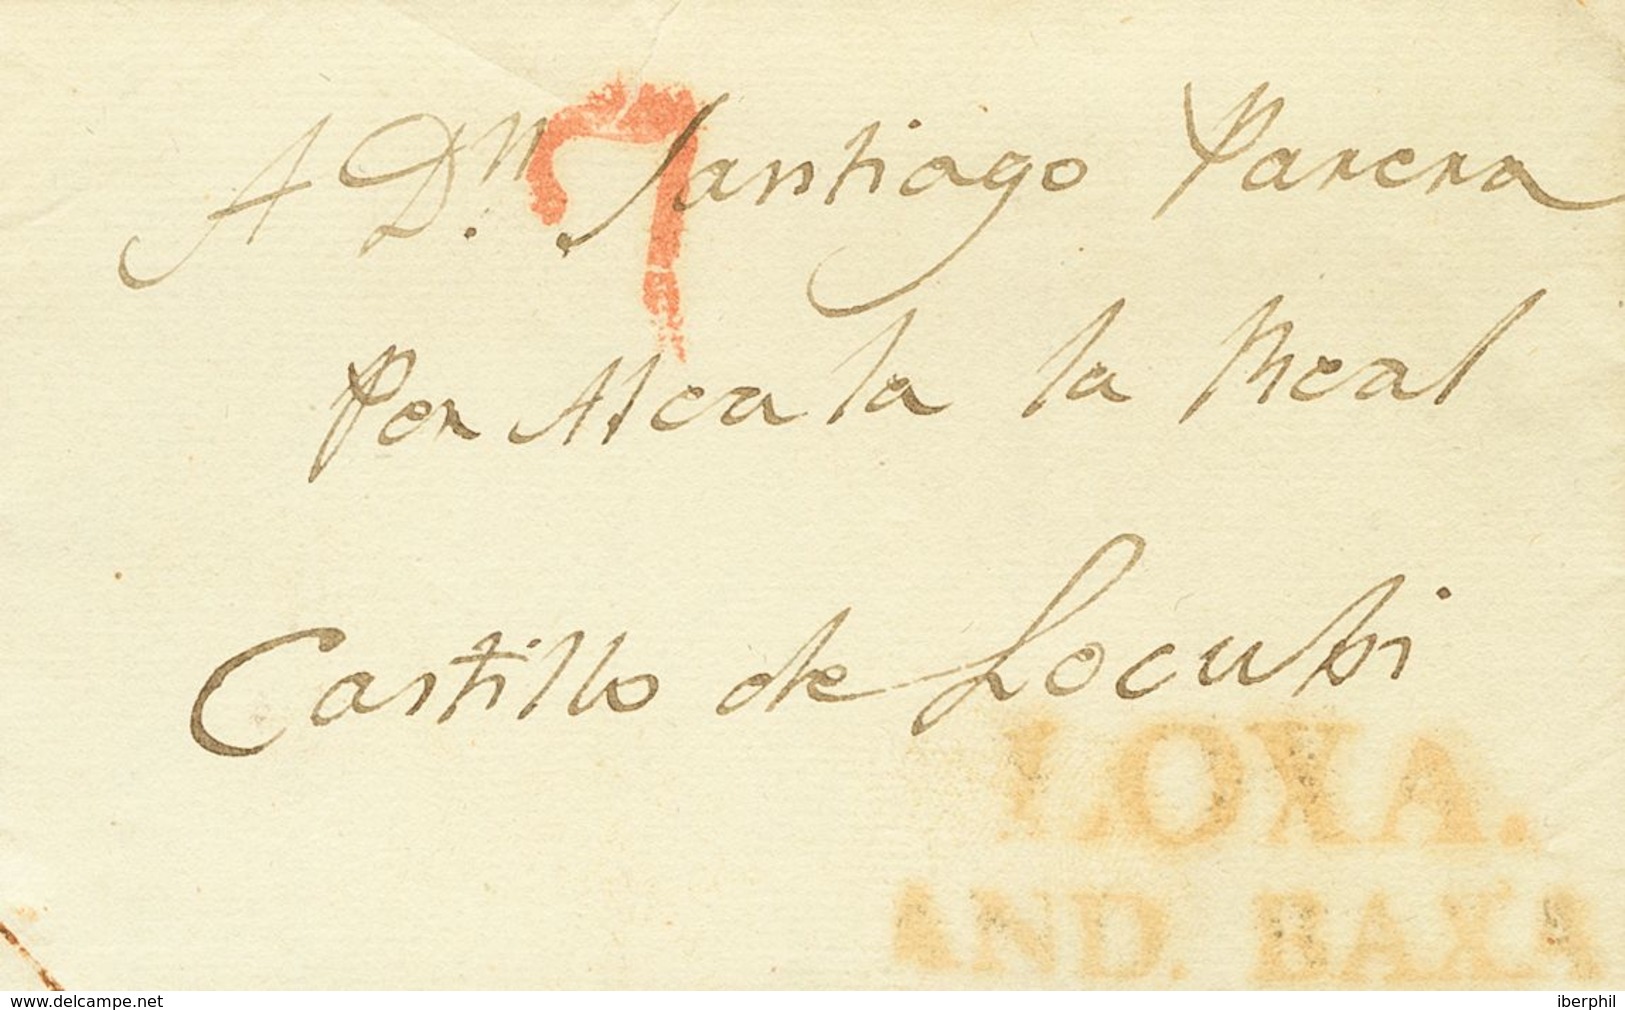 A Dn. Santiago Parera
7
Por Alcala la Real
Castillo de Locubi
LOXA.
AND. BAXA
www.delcampe.net
iberphil